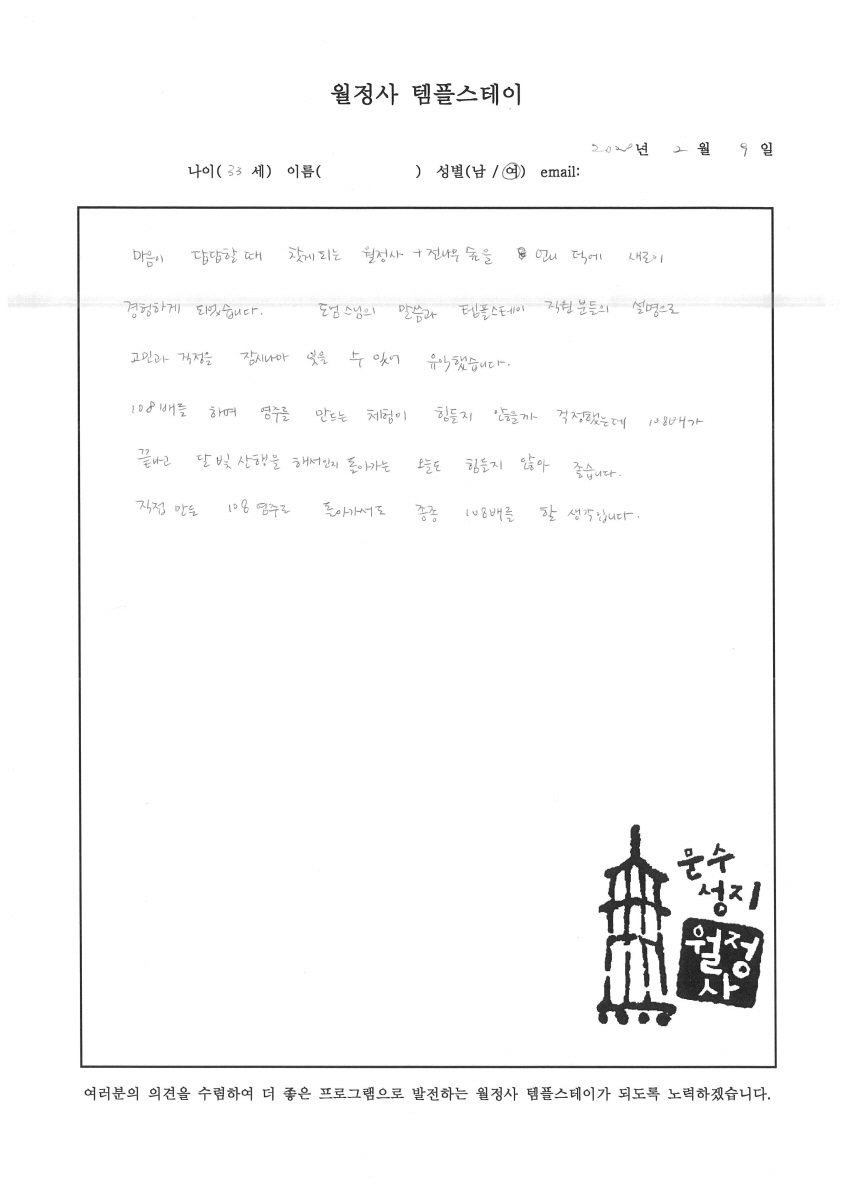 월정사 템플스테이
2020년 2월 9일
나이( 33 세) 이름( ) 성별(남 / 여) email:
마음이 답답할 때 찾게되는 월정사 + 전나무 숲을 언니 덕에 새로이
경험하게 되었습니다. 도엄스님의 말씀과 템플스테이 직원분들의 설명으로
고민과 걱정을 잠시나마 잊을 수 있어 유익했습니다.
108배를 하며 염주를 만드는 체험이 힘들지 않을까 걱정했는데 108배가
끝나고 달빛산행을 해서인지 돌아가는 오늘도 힘들지 않아 좋습니다.
직접 만든 108 염주로 돌아가서도 종종 108배를 할 생각입니다.
문수
성지
월정
사
여러분의 의견을 수렴하여 더 좋은 프로그램으로 발전하는 월정사 템플스테이가 되도록 노력하겠습니다.